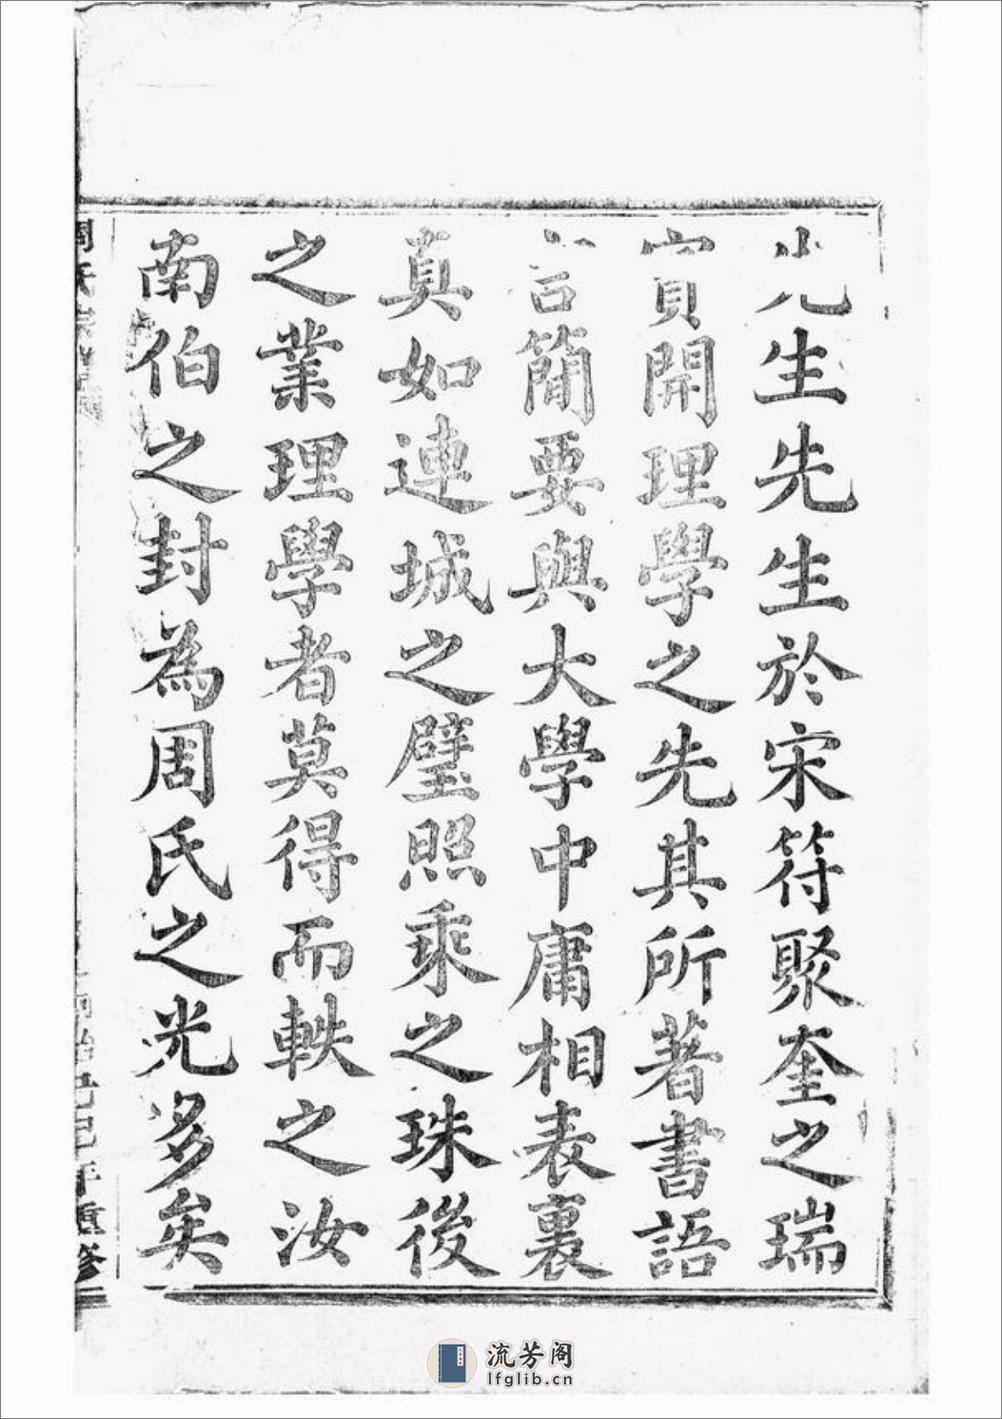 先生先生於宋符聚奎之瑞
實開理學之先其所著書語
言簡要與大學中庸相表裏
真如連城之璧照乘之珠後
之業理學者莫得而軼之汝
南伯之封為周氏之光多矣
年重修
流芳阁
lfglib.cn